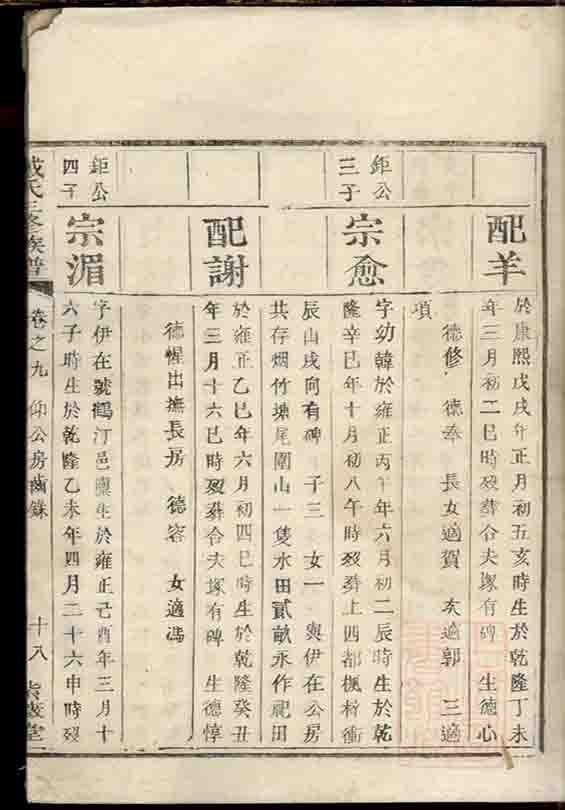 配羊
於康熙戊戌年正月初五亥時生於乾隆丁未
年三月初二巳時歿葬合夫塚有碑 生德心
德修 德奉 長女適賀 次適郭 三適
項
鉅公
三子
宗愈
字幼韓於雍正丙午年六月初二辰時生於乾
隆辛巳年十月初八午時歿葬上四都楓樹衝
辰山戌向有碑 子三 女一 與伊在公房
共存烟竹塘尾圍山一隻水田貳畝永作祀田
配謝
於雍正乙巳年六月初四巳時生於乾隆癸丑
年三月十六巳時歿葬合夫塚有碑 生德惇
德惺出撫長房 德容 女適馮
鉅公
四子
宗湄
字伊在號鶴汀邑廩生於雍正己酉年三月十
六子時生於乾隆乙未年四月二十六申時歿
氏三修族譜
卷之九 仰公房齒錄
十八
堂